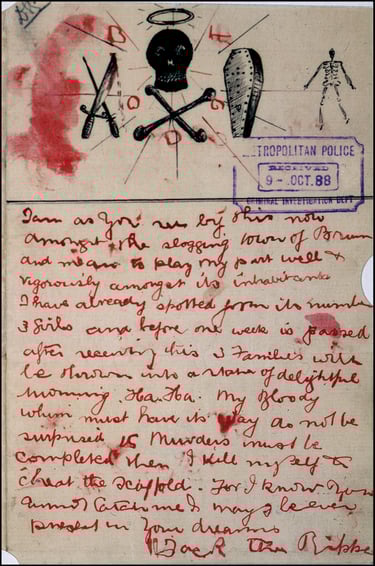 B
A
D
D
METROPOLITAN POLICE
RECEIVED
9-OCT.88
CRIMINAL INVESTIGATION DEPT
I am as you see by this now
amongst the slogging town of Brum
and mean to play my part well &
vigorously amongst its inhabitants
I have already spotted from its number
3 girls and before one week is passed
after receiving this 3 Families will
be thrown into a state of delightful
mourning. Ha. Ha. My Bloody
whim must have its way do not be
surprised 15 Murders must be
completed then I kill myself to
cheat the scaffold. For I know you
cannot catch me & I may be ever
present in your dreams
Jack the Ripper